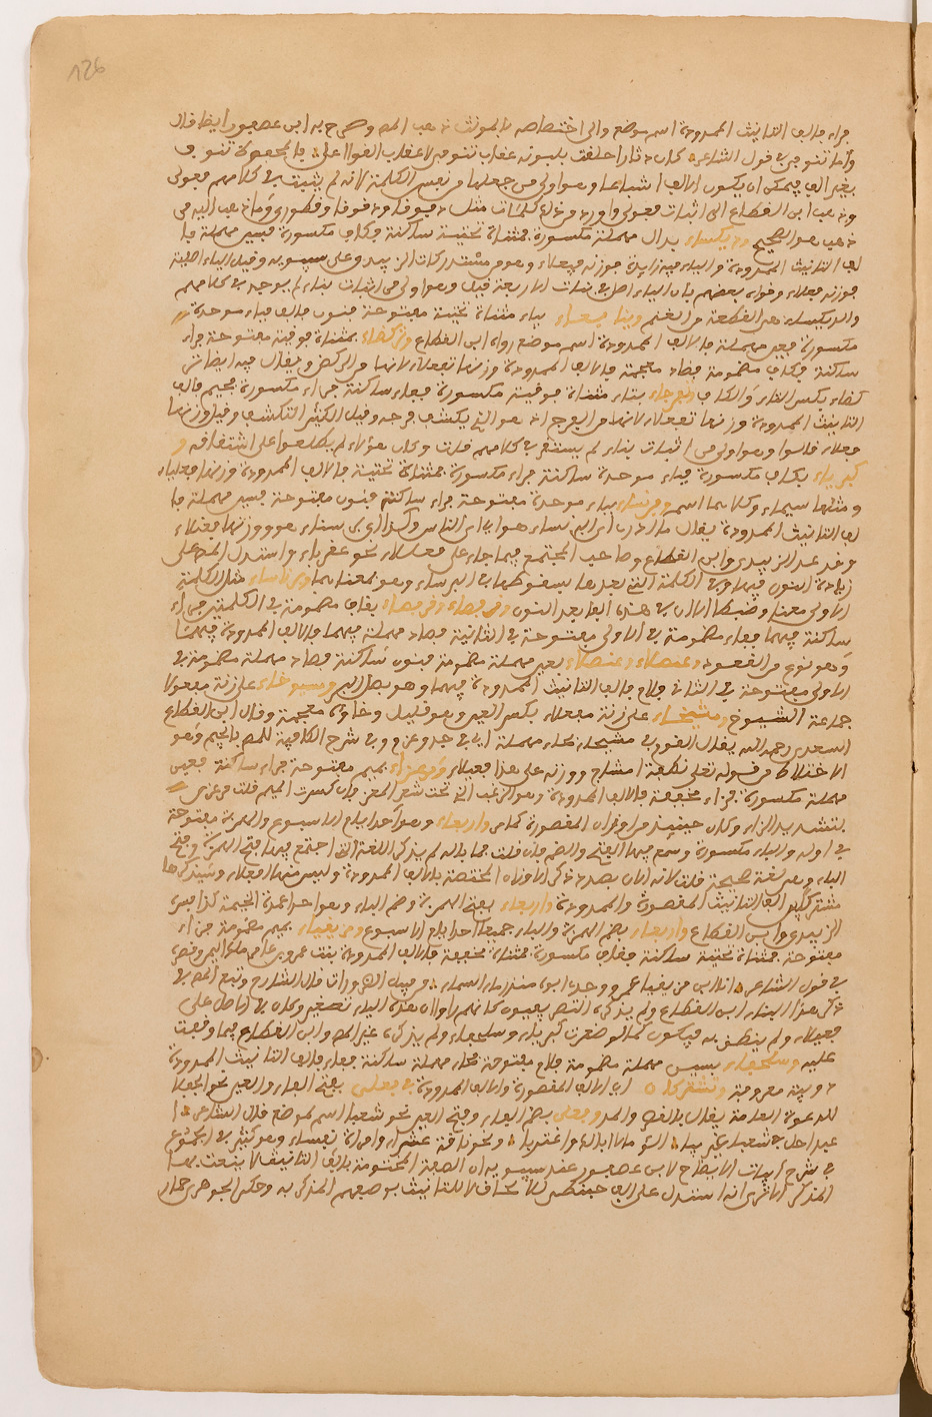 126
براء فالف التانيث الممدودة اسم موضع والى اختصاصه بالمونث ذهب المص وصرح به ابن عصفور ايضا قال
واما تنوفى في قول الشاعر كان دثارا حلقت بلبونه عقاب تنوفى لا عقاب القواعل
بغير الف فيمكن ان يكون الالف اشباعا وهو اولى من جعلها من نفس الكلمة لانه لم يثبت في كلامهم فعولى
وذهب ابن القطاع الى اثبات فعولى واورد من ذلك كلمات مثل
ذهب هو الصحيح وديكساء بدال مهملة مكسورة فمثناة تحتية ساكنة فكاف مكسورة فسين مهملة فا
لف التانيث الممدودة والياء فيه زايدة فوزنه فيعلاء وهو من مستدركات الزبيدي على سيبويه وقيل الياء اصلية
فوزنه فعللاء وقواه بعضهم بان الياء اصل في بنات الاربعة قليل وهو اولى من اثبات بناء لم يوجد في كلامهم
والديكساء هي القطعة من الغنم وينابعاء بياء مثناة تحتية مفتوحة فنون فالف فباء موحدة
مكسورة فعين مهملة فالالف الممدودة اسم موضع رواه ابن القطاع وتركضاء بمثناة فوقية مفتوحة فراء
ساكنة فكاف مضمومة فضاد معجمة فالالف الممدودة وزنها تفعلاء لانها من الركض ويقال فيه ايضا تر
كضاء بكسر التاء والكاف وتفرجاء بتاء مثناة فوقية مكسورة ففاء ساكنة فراء مكسورة فجيم فالف
التانيث الممدودة وزنها تفعلاء لانها من الفرج اذ هو الذي يكشف فرجه وقيل الكثير التكشف وقيل وزنها
فعللاء قالوا وهو اولى من اثبات بناء لم يستقر في كلامهم قلت وكان هؤلاء لم يطلعوا على اشتقاقه و
كبرياء بكاف مكسورة فباء موحدة ساكنة فراء مكسورة فمثناة تحتية فالالف الممدودة وزنها فعلياء
ومثلها سيمياء وكلاهما اسم وبرنساء بباء موحدة مفتوحة فراء ساكنة فنون مفتوحة فسين مهملة فا
لف التانيث الممدودة يقال ما ادري اي البرنساء هو اي اي الناس وكذا اي برناساء هو ووزنها فعنلاء
وقد عد الزبيدي وابن القطاع وصاحب المجتمع فيما جاء على فعللاء نحو عقرباء واستدل المص على
زيادة النون فيها وفي الكلمة التي بعدها بسقوطها في البرساء وهو بمعناهما وبرناساء مثل الكلمة
الاولى معنى وضبطا الا ان في هذه الفا بعد النون وقرفصاء وقرفصاء بقاف مضمومة في الكلمتين فراء
ساكنة فيهما ففاء مضمومة في الاولى مفتوحة في الثانية فصاد مهملة فيهما فالالف الممدودة فيهما
وهو نوع من القعود وعنصلاء وعنصلاء بعين مهملة مضمومة فنون ساكنة فصاد مهملة مضمومة في
الاولى مفتوحة في الثاني فلام فالف التانيث الممدودة فيهما وهو بصل البر ومشيوخاء على زنة مفعولا
جماعة الشيوخ ومشيخاء على زنة مفعلاء بكسر العين وهو قليل وخاؤه معجمة وقال ابن القطاع
السعدي رحمه الله يقال القوم في مشيحاء بحاء مهملة اي في جد وعزم وفي شرح الكافية للمص بالجيم وهو
الاختلاط من قوله تعلى نطفة امشاج ووزنه على هذا فعيلاء ومرعزاء بميم مفتوحة فراء ساكنة فعين
مهملة مكسورة فزاء مخففة فالالف الممدودة وهو الزغب الذي تحت شعر المعز فان كسرت الميم قلت مرعزى
بتشديد الزاء وكان حينئذ من اوزان المقصورة كما مر واربعاء وهو احد ايام الاسبوع والهمزة مفتوحة
في اوله والباء مكسورة وسمع فيها الفتح والضم فان قلت فما باله لم يذكر اللغة التي اجتمع فيها فتح الهمزة وفتح
الباء وهي لغة صحيحة قلت لانه الان بصدد ذكر الاوزان المختصة بالالف الممدودة وليس منها افعلاء وسيذكرها
مشتركا بين الفي التانيث المقصورة والممدودة واربعاء بفتح الهمزة وضم الباء وهو احد اعمدة الخيمة كذا فسره
الزبيدي وابن القطاع واربعاء بضم الهمزة والباء جميعا احد ايام الاسبوع ومزيقياء بميم مضمومة فزاء
مفتوحة فمثناة تحتية ساكنة فقاف مكسورة فمثناة مخففة فالالف الممدودة لقب عمرو بن عامر ملك اليمن وقصره
في قول الشاعر انا ابن مزيقيا عمرو وجدي ابوه منذر ماء السماء من قبيل الضرورات قال الشارح وتبع المص في
ذكر هذا البناء ابن القطاع ولم يذكره التصريفيون كانهم راوا ان هذه الياء تصغير وكان في الاصل على
فعيلاء ولم ينطق به فيكون كما لو صغرت كبرياء وسلحفاء ولم يذكره غير المص وابن القطاع فيما وقفت
عليه وسلحفاء بسين مهملة مضمومة فلام مفتوحة فحاء مهملة ساكنة ففاء فالف التانيث الممدودة
دويبة معروفة وتشتركان اي الالف المقصورة والالف الممدودة في فعلى بفتح الفاء والعين نحو الجفلا
للدعوة العامة يقال بالقصر والمد وفعلى بضم الفاء وفتح العين نحو شعبا اسم لموضع قال الشاعر ا
عبدا حل في شعبى غريبا الؤما لا ابالك واغترابا ونحو ناقة عشراء وامراة نفساء وهو كثير في الجموع
في شرح ابيات الايضاح لابن عصفور عند سيبويه ان الصفة المختومة بالف التانيث لا ينعت بها
المذكر الا ترى انه استدل على الف حبنطى ليلا تخاف لا للتانيث بوصفهم المذكر به وحكى الجوهري حمار